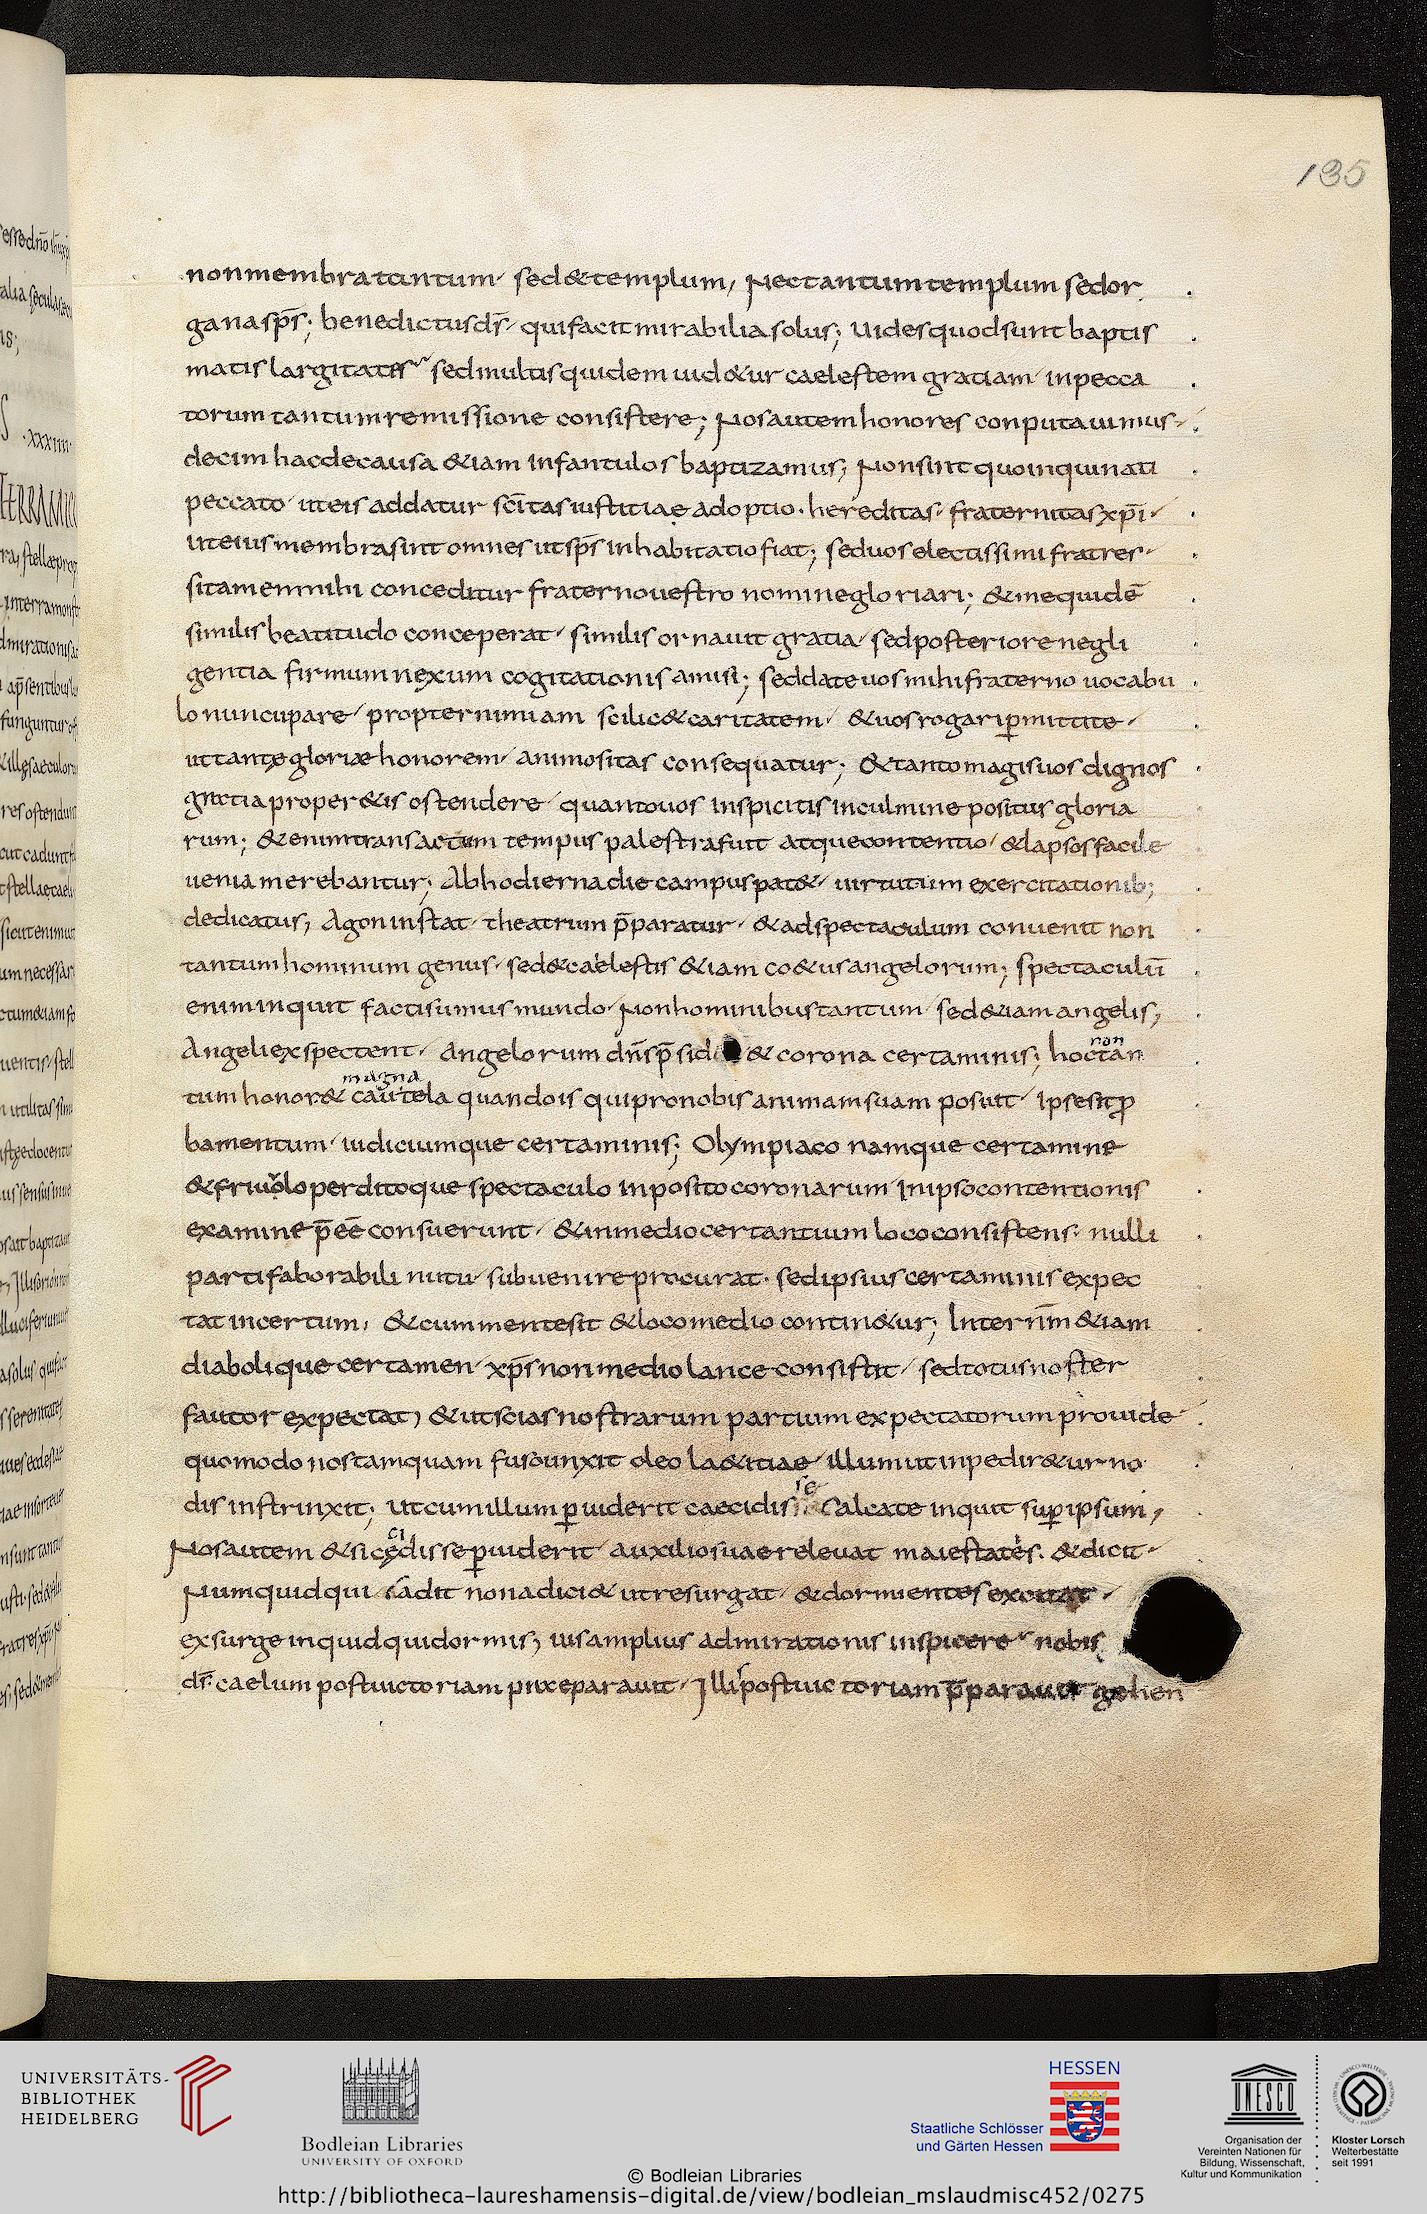 135
non membra tantum sed & templum, Nec tantum templum sed or
gana sp̄s; benedictus d̄s qui facit mirabilia solus; Uides quod sunt baptis
matis largitates sed multis quidem uid&ur caelestem gratiam in pecca
torum tantum remissione consistere; Nos autem honores conputauimus
decim hac de causa &iam infantulos baptizamus; Non sint quoinquinati
peccato ut eis addatur sc̄itas iustitiae adoptio. hereditas. fraternitas xp̄i
ut eius membra sint omnes ut sp̄s inhabitatio fiat; sed uos electissimi fratres
si tamen mihi conceditur fraterno uestro nomine gloriari; & me quidē
similis beatitudo conceperat similis ornauit gratia sed posteriore negli
gentia firmum nexum cogitationis amisi; sed date uos mihi fraterno uocabu
lo nuncupare propter nimiam scilic& caritatem & uos rogari p̱mittite
ut tante gloriae honorem animositas consequatur; & tanto magis uos dignos
gratia proper&is ostendere quanto uos inspicitis in culmine positus gloria
rum; &enim transactum tempus palestra fuit atque contentio & lapsos facile
uenia merebantur; Ab hodierna die campus pat& uirtutum exercitationib;
dedicatus, Agon instat theatrum p̄paratur & ad spectaculum conuenit non
tantum hominum genus sed & caelestis &iam co&us angelorum; spectaculū
enim inquit facti sumus mundo Non hominibus tantum sed &iam angelis,
Angeli exspectent Angelorum dn̄s p̄sid & corona certaminis; hoc tan
non
tum honor & cautela quando is qui pro nobis animam suam posuit ipse sit ꝓ
magna
bamentum iudiciumque certaminis; Olympiaco namque certamine
& friuolo perditoque spectaculo inposito coronarum In ipso contentionis
examine p̄eē consuerunt & in medio certantium loco consistens nulli
parti faborabili nutu subuenire procurat. sed ipsius certaminis expec
tat incertum, & cum mente sit & loco medio contin&ur; Interim̄ &iam
diabolique certamen xp̄s non medio lance consistit sed totus noster
fautor expectat, & ut scias nostrarum partium expectatorum prouide
quomodo nos tamquam fuso unxit oleo la&itiae illum ut inpedir&ur no
dis instrinxit; Ut cum illum p̱uiderit caecidis Calcate inquit sup̱ ipsum,
se
Nos autem & si cędisse p̱uiderit auxilio suae releuat maiestates. & dicit
ci
Numquid qui cadit non adici& ut resurgat & dormientes excitat
exsurge inquid qui dormis, uis amplius admirationis inspicere nobis
d̄s caelum post uictoriam praeparauit Illi post uictoriam p̄parauit gehen
UNIVERSITÄTS-
BIBLIOTHEK
HEIDELBERG
Bodleian Libraries
UNIVERSITY OF OXFORD
HESSEN
Staatliche Schlösser
und Gärten Hessen
UNESCO
Organisation der
Vereinten Nationen für
Bildung, Wissenschaft,
Kultur und Kommunikation
Kloster Lorsch
Welterbestätte
seit 1991
© Bodleian Libraries
http://bibliotheca-laureshamensis-digital.de/view/bodleian_mslaudmisc452/0275